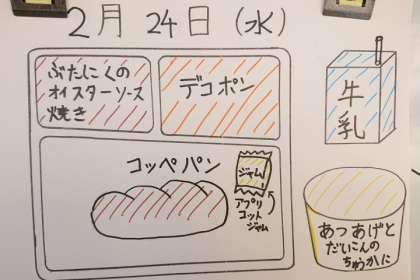 2月 24日 (水)
ぶたにくの
オイスターソース
焼き
デコポン
牛
乳
コッペパン
ジャム
アプリ
コット
ジャム
あつあげと
だいこんの
ちゅうかに